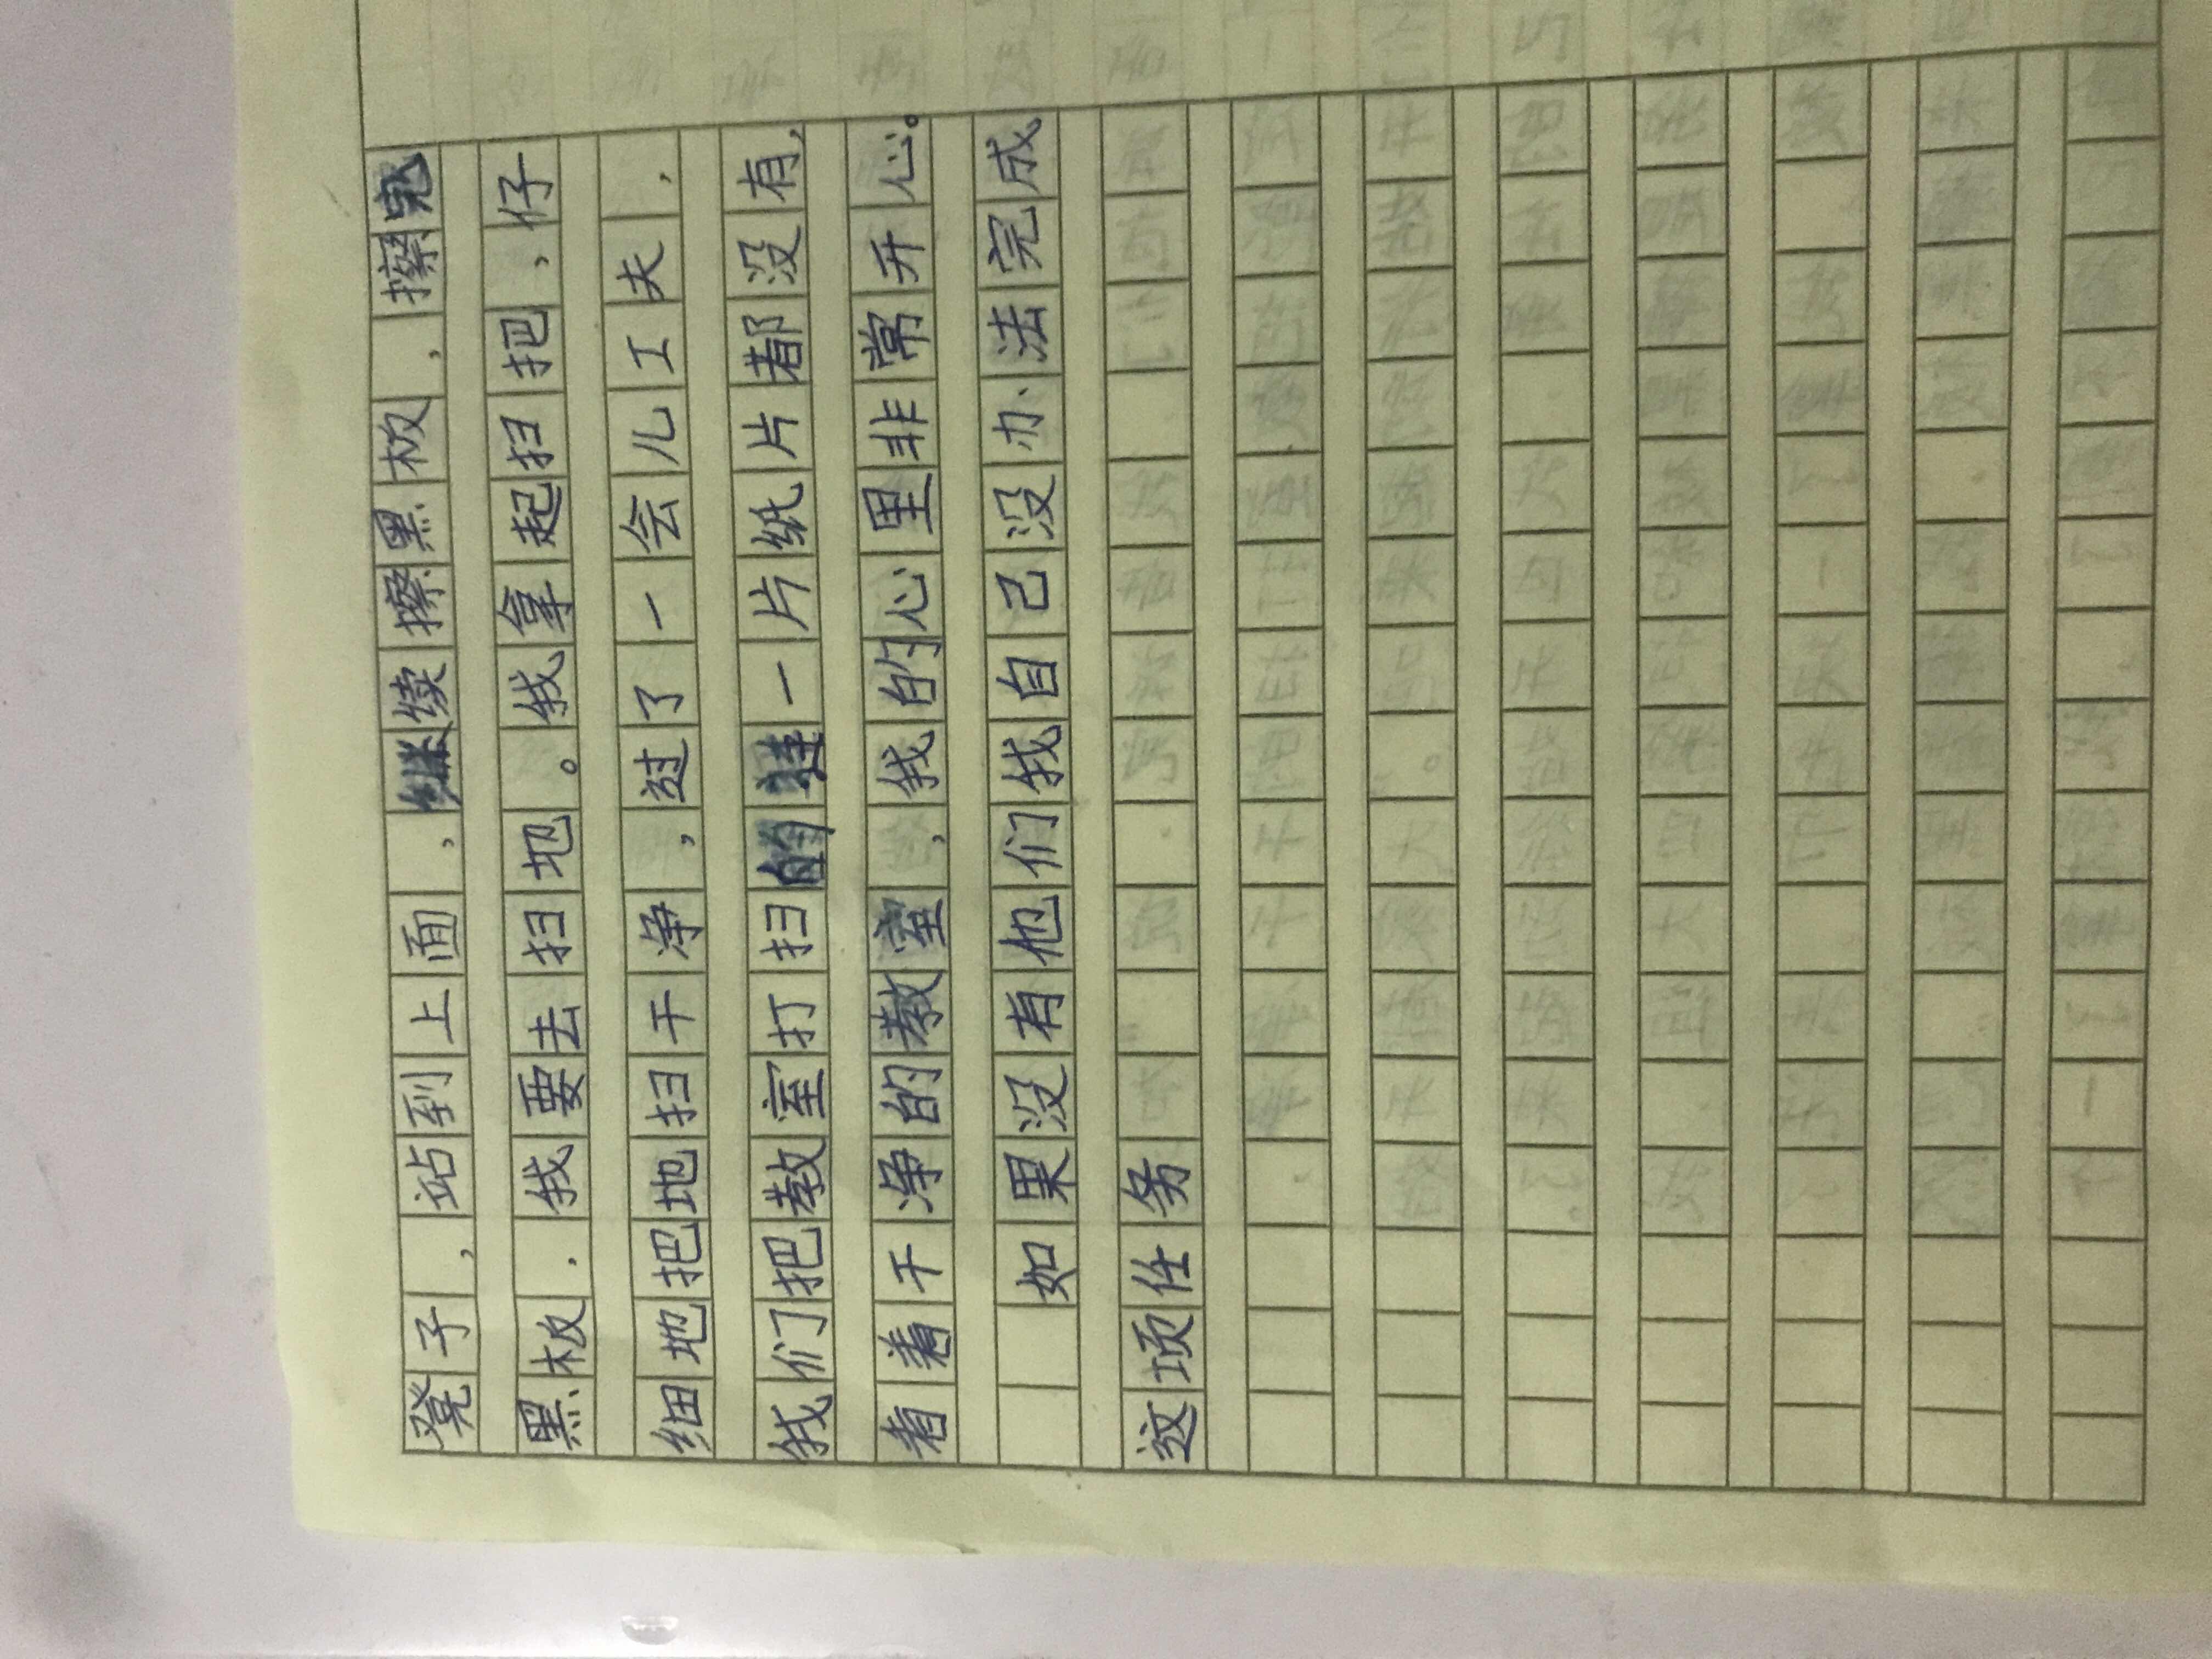 凳子，站到上面，继续擦黑板，擦完
黑板，我要去扫地。我拿起扫把，仔
细地把地扫干净，过了一会儿工夫，
我们把教室打扫的连一片纸片都没有，
看着干净的教室，我的心里非常开心。
如果没有他们我自己没办法完成
这项任务